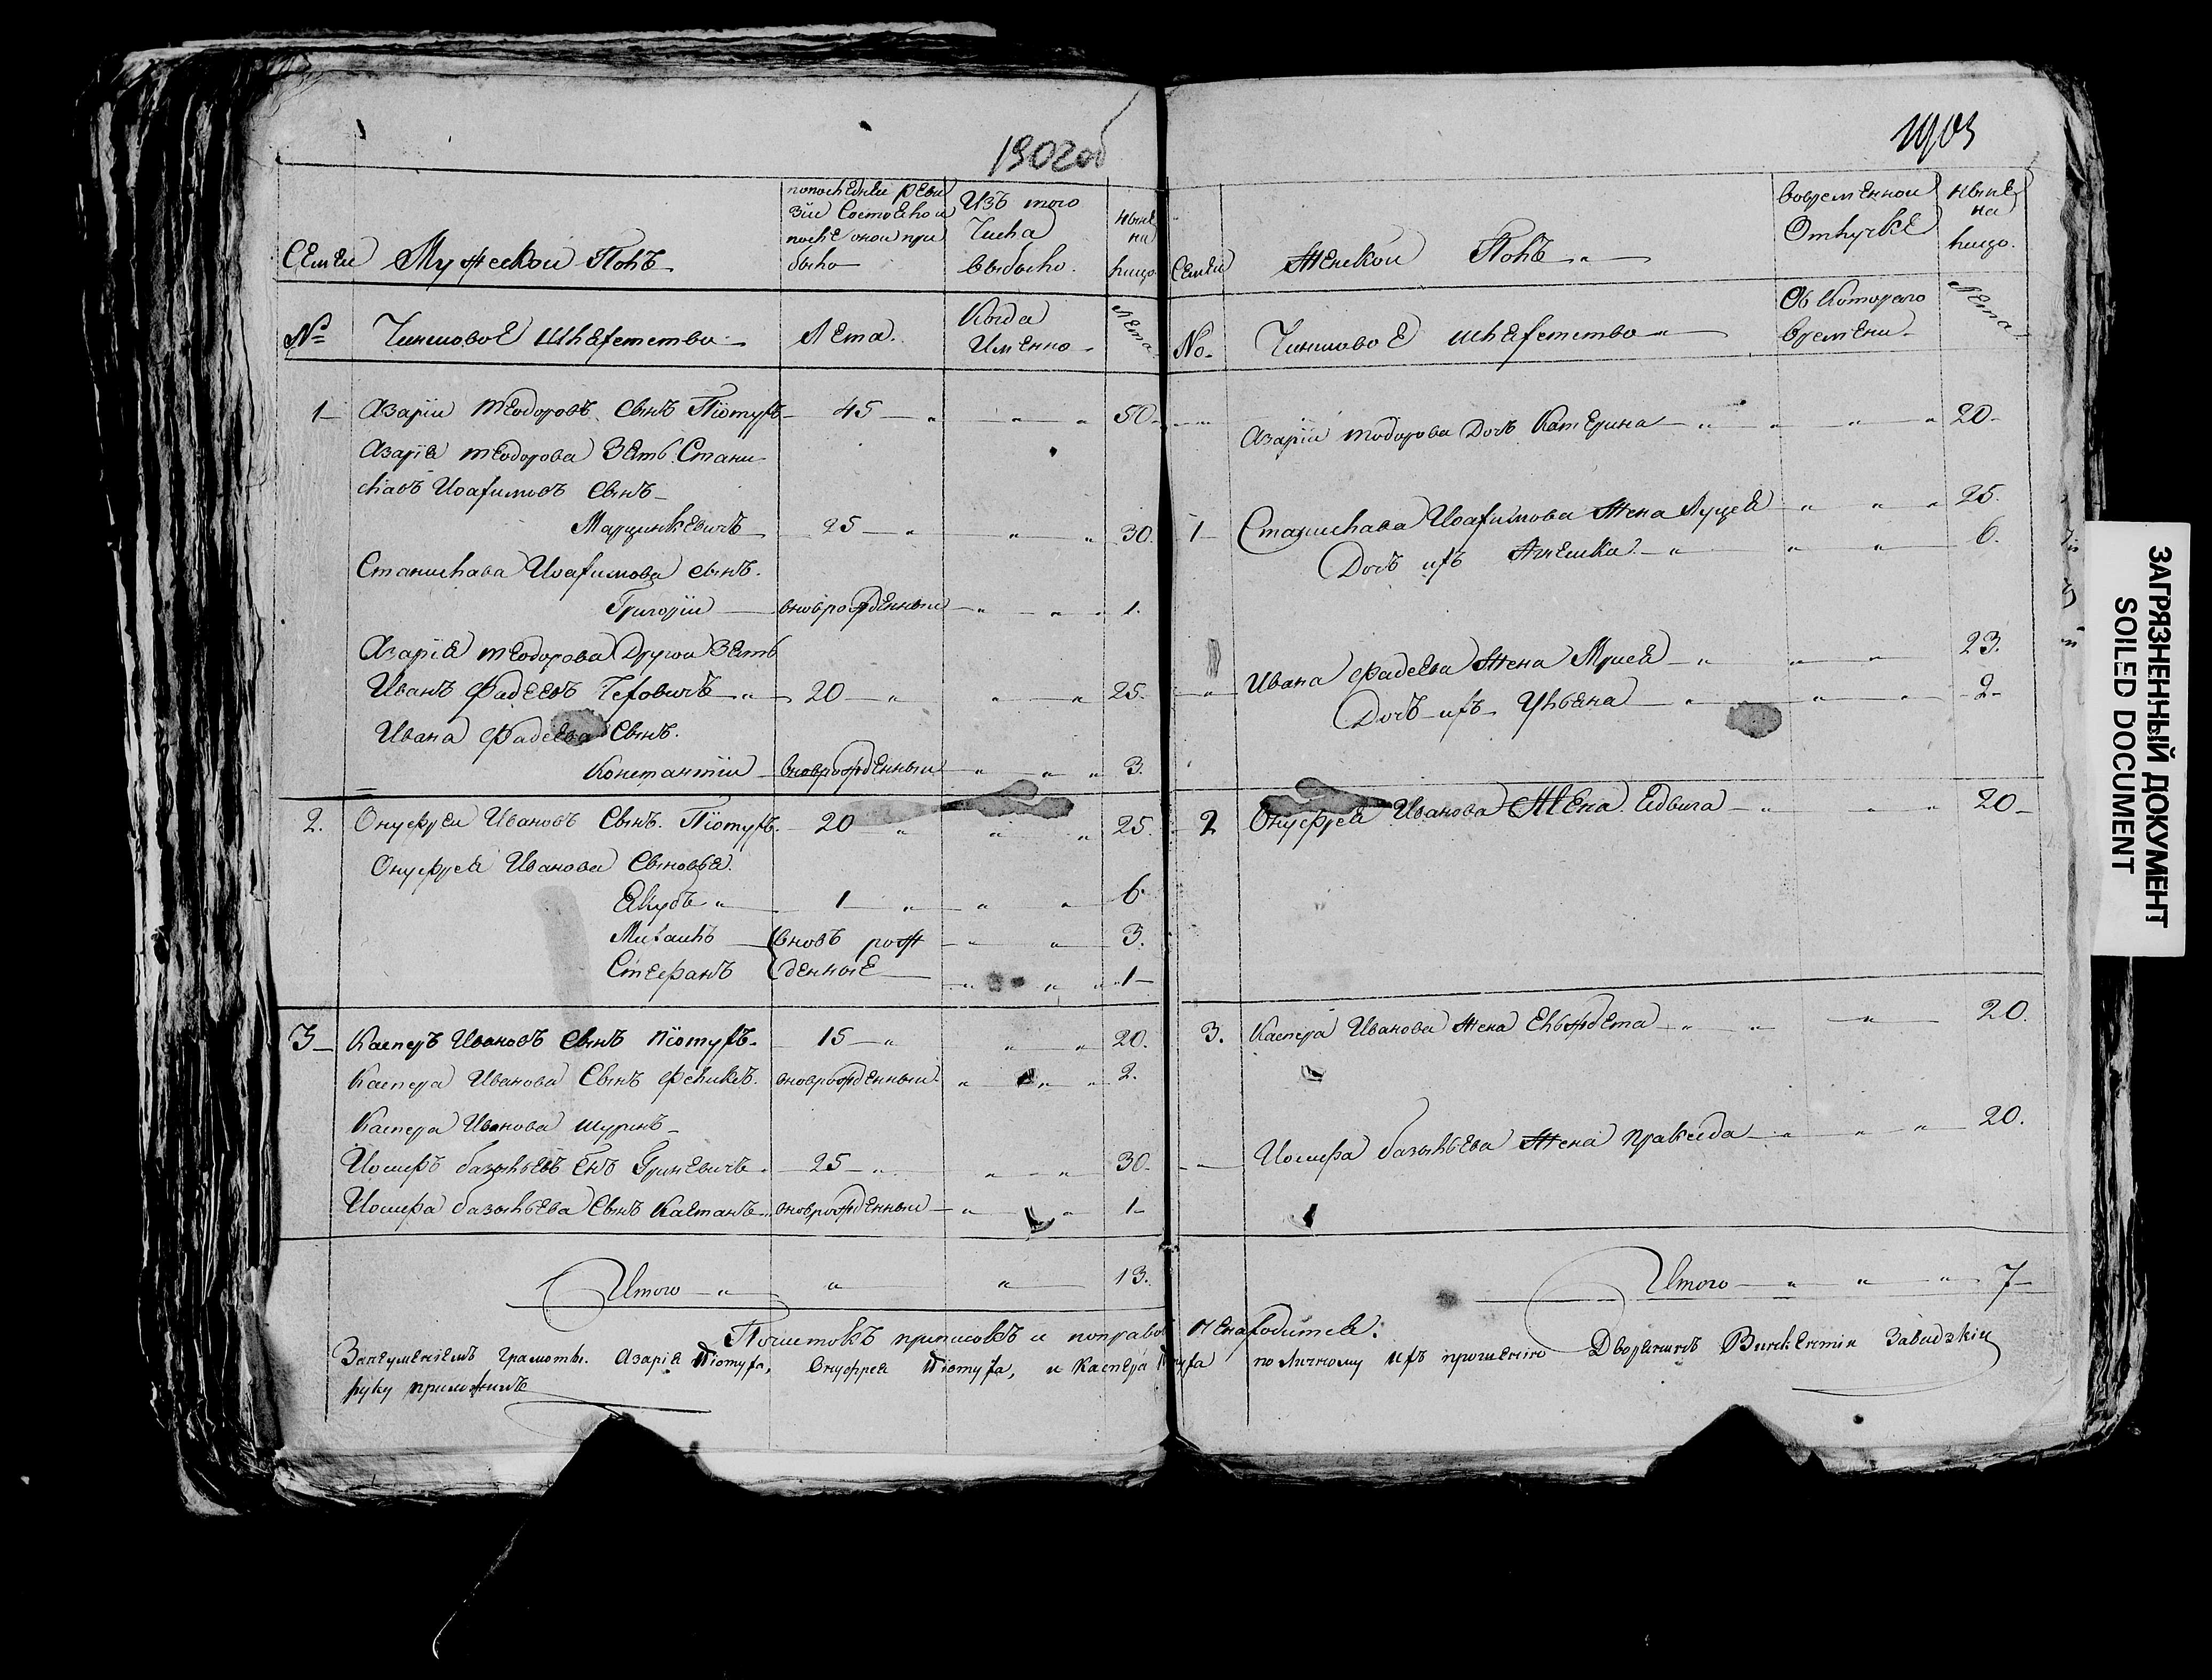 1902об
Семьи Мужеской Полъ
по последней реви
зіи состояло и
после оной при
было
Изъ того
Числа
выбыло.
ныне
на
лицо
№ Чиншовое Шляхетство
Лета.
Когда
Именно
Лета
1 Азарій Теодоровъ Сынъ Піотухъ 45 50
Азарія Теодорова Зять Стани
славъ Иоахимовъ Сынъ
Марцинкевичъ 25 30.
Станислава Иоахимова сынъ.
Григорій вноврожденный 1.
Азарія Теодорова Другой Зять
Иванъ Фадеевъ Чеховичъ 20 25.
Ивана Фадеева Сынъ.
Константій вноврожденный 3.
2. Онуфрей Ивановъ Сынъ Піотухъ. 20 25.
Онуфрея Иванова Сыновья.
Якубъ 1 6
Михаилъ вновъ рож 3.
Стефанъ денные 1
3 Касперъ Ивановъ Сынъ Піотухъ. 15 20.
Каспера Иванова Сынъ Феликсъ. вноврожденный 2.
Каспера Иванова шуринъ
Иосифъ базыльевъ Гриневичъ 25 30
Иосифа базыльева Сынъ Каетанъ вноврожденный 1
Итого 13.
1903
Семьи Женской Полъ
вовременной
Отлучке
ныне
на
лицо.
No. Чиншовое шляхетство
Об Которого
времени
Лета
Азарія Тодорова Дочь Катерина 20
1 Станислава Иоахимова Жена Луцея 25.
Дочь ихъ Анешка 6.
Ивана Фадеева Жена Марея 23.
Дочъ ихъ Ульяна 2
2 Онуфрея Иванова Жена Едвига 20
3. Каспера Иванова Жена Елжбета 20.
Иосифа базыльева Жена Пракседа 20.
Итого 7
Почистокъ приписокъ и поправокъ ненаходится.
Занеуменіемъ грамоты. Азарія Піотуха, Онуфрея Піотуха, и Каспера Птуха по личному ихъ прошенію Дворянинъ Завидзкій
руку приложилъ
ЗАГРЯЗНЕННЫЙ ДОКУМЕНТ
SOILED DOCUMENT